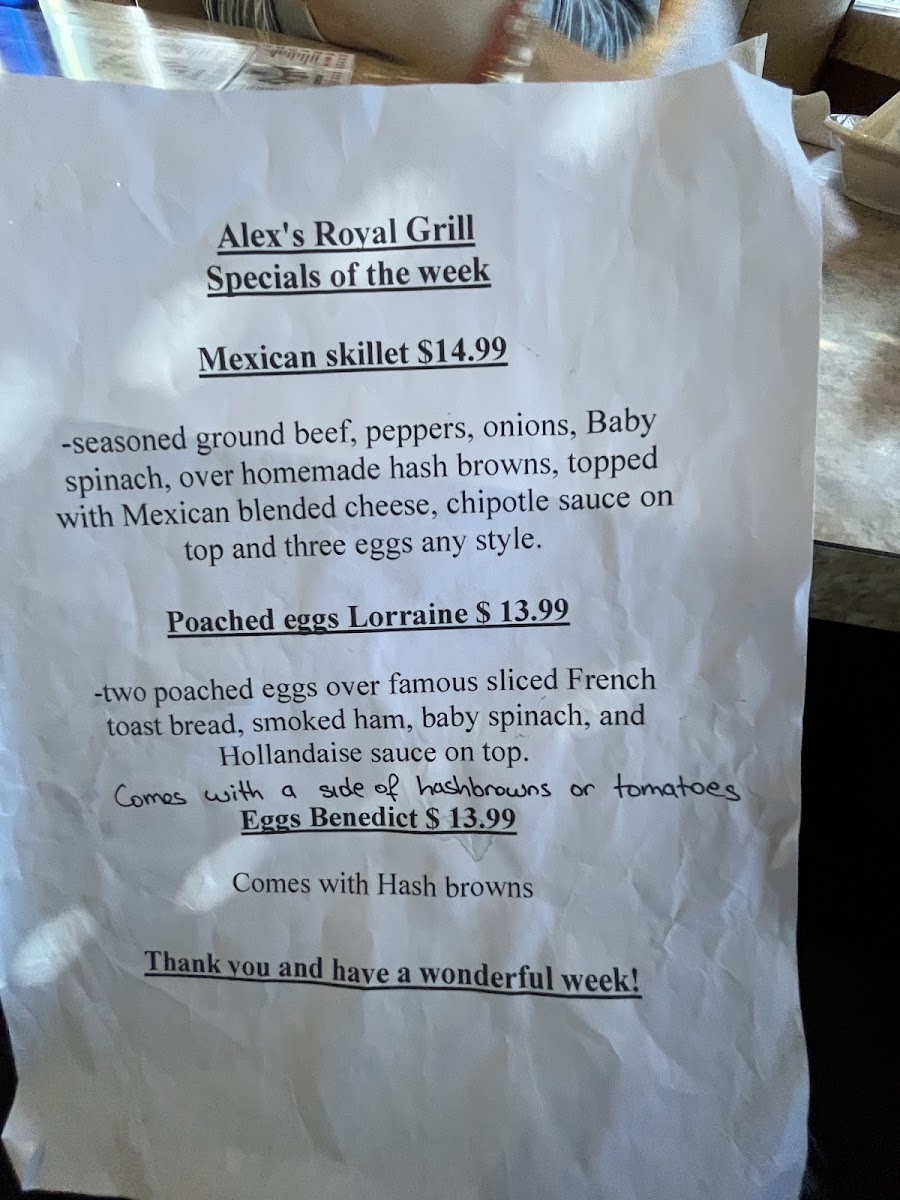 Alex's Royal Grill
Specials of the week
Mexican skillet $14.99
-seasoned ground beef, peppers, onions, Baby
spinach, over homemade hash browns, topped
with Mexican blended cheese, chipotle sauce on
top and three eggs any style.
Poached eggs Lorraine $ 13.99
-two poached eggs over famous sliced French
toast bread, smoked ham, baby spinach, and
Hollandaise sauce on top.
Comes with a side of hashbrowns or tomatoes
Eggs Benedict $ 13.99
Comes with Hash browns
Thank you and have a wonderful week!